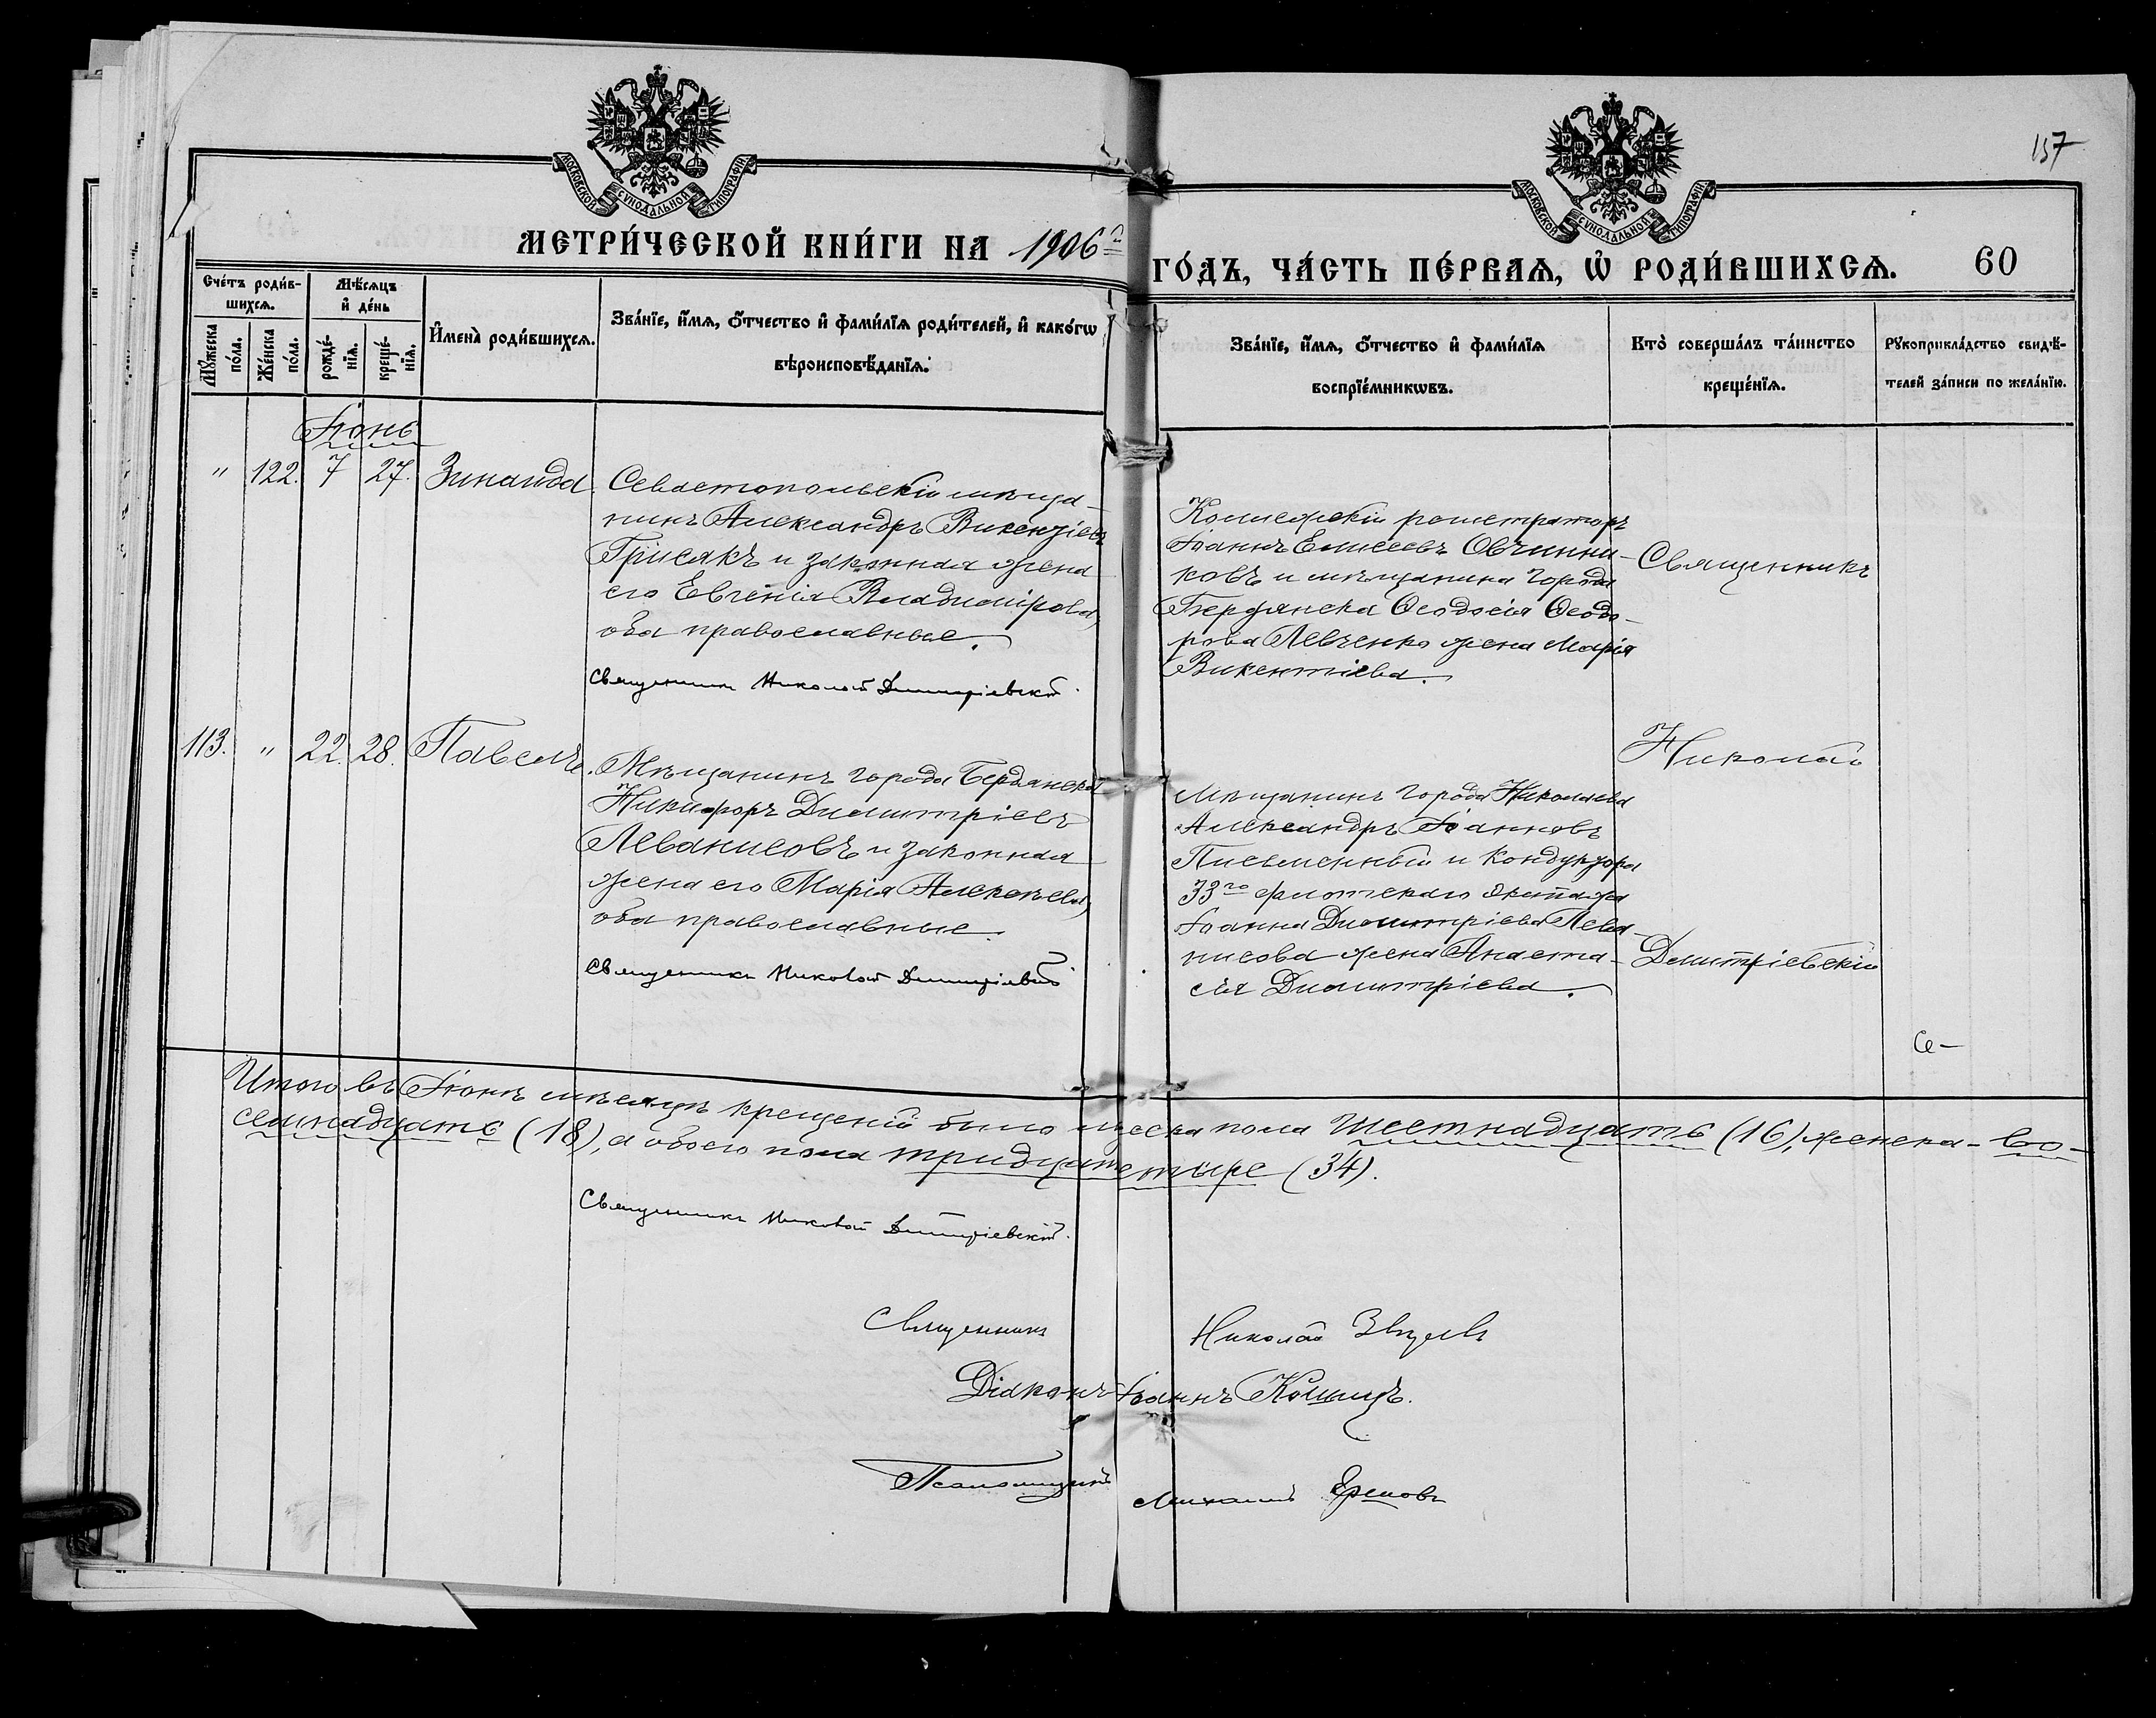 157
МОСКОВСКОЙ СѴНОДАЛЬНОЙ ТИПОГРАФІИ
МОСКОВСКОЙ СѴНОДАЛЬНОЙ ТИПОГРАФІИ
МЕТРИ́ЧЕСКОЙ КНИ́ГИ НА 1906 й
ГО́ДЪ, ЧА́СТЬ ПЕ́РВАЯ, Ѡ҆ РОДИ́ВШИХСЯ. 60
Сче́тъ роди́в-
шихся.
Мꙋ́жеска
по́ла.
Же́нска
по́ла.
Мѣ́сяцъ
и҆ де́нь
рожде́-
нїя.
креще́-
нїя.
И҆мена̀ роди́вшихся.
Зва́нїе, и҆́мя, ѻ҆́тчество и҆ фами́лїя роди́телей, и҆ како́гѡ
вѣроисповѣ́данїя.
Зва́нїе, и҆́мя, ѻ҆́тчество и҆ фами́лїя
воспрїе́мникѡвъ.
Кто̀ соверша́лъ та́инство
креще́нїя.
Рꙋкоприкла́дство свидѣ́-
телей за́писи по жела́нїю.
Іюнь
" 122. 7 27. Зинаида
Севастопольскій мѣща-
нинъ Александръ Викензіевъ
Грисякъ и законная жена
его Евгенія Владимірова,
оба православные.
Священникъ Николай Димитріевскій.
Коллежскій регистраторъ
Іоаннъ Елисеевъ Овчинни-
ковъ и мѣщанина города
Бердянска Ѳеодосія Ѳеодо-
рова Левченко жена Марія
Викентіева.
Священникъ
Николай
Димитріевскій
113. " 22. 28. Павелъ.
Мѣщанинъ города Бердянска
Никифоръ Димитріевъ
Леванисовъ и законная
жена его Марія Алексѣева,
оба православные.
Священникъ Николай Димитріевскій
Мѣщанинъ города Николаева
Александръ Іоанновъ
Письменный и кондуктора
33го флотскаго экипажа
Іоанна Димитріева Лева-
нисова жена Анаста-
сія Димитріева.
Се-
Итого въ Іюнѣ мѣсяцѣ крещеній было мужеска пола шестнадцать (16), женска - во-
семнадцать (18), а обоего пола тридцать четыре (34).
Священникъ Николай Димитріевскій.
Священникъ Николай
Діаконъ Іоаннъ
Псаломщикъ Михаилъ